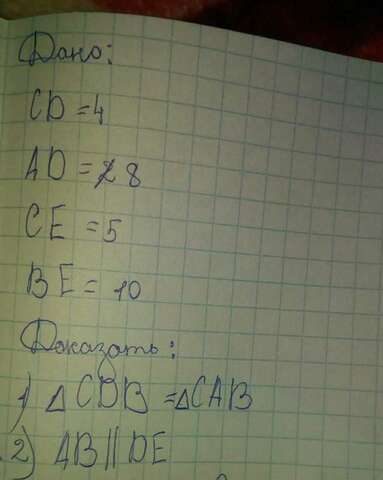 Дано:
CD = 4
AD = 8
CE = 5
BE = 10
Доказать:
1) △CDB = △CAB
2) AB || DE